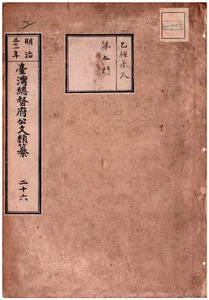 明治
三十一年
臺灣總督府公文類纂
二十六
乙種永久
第五